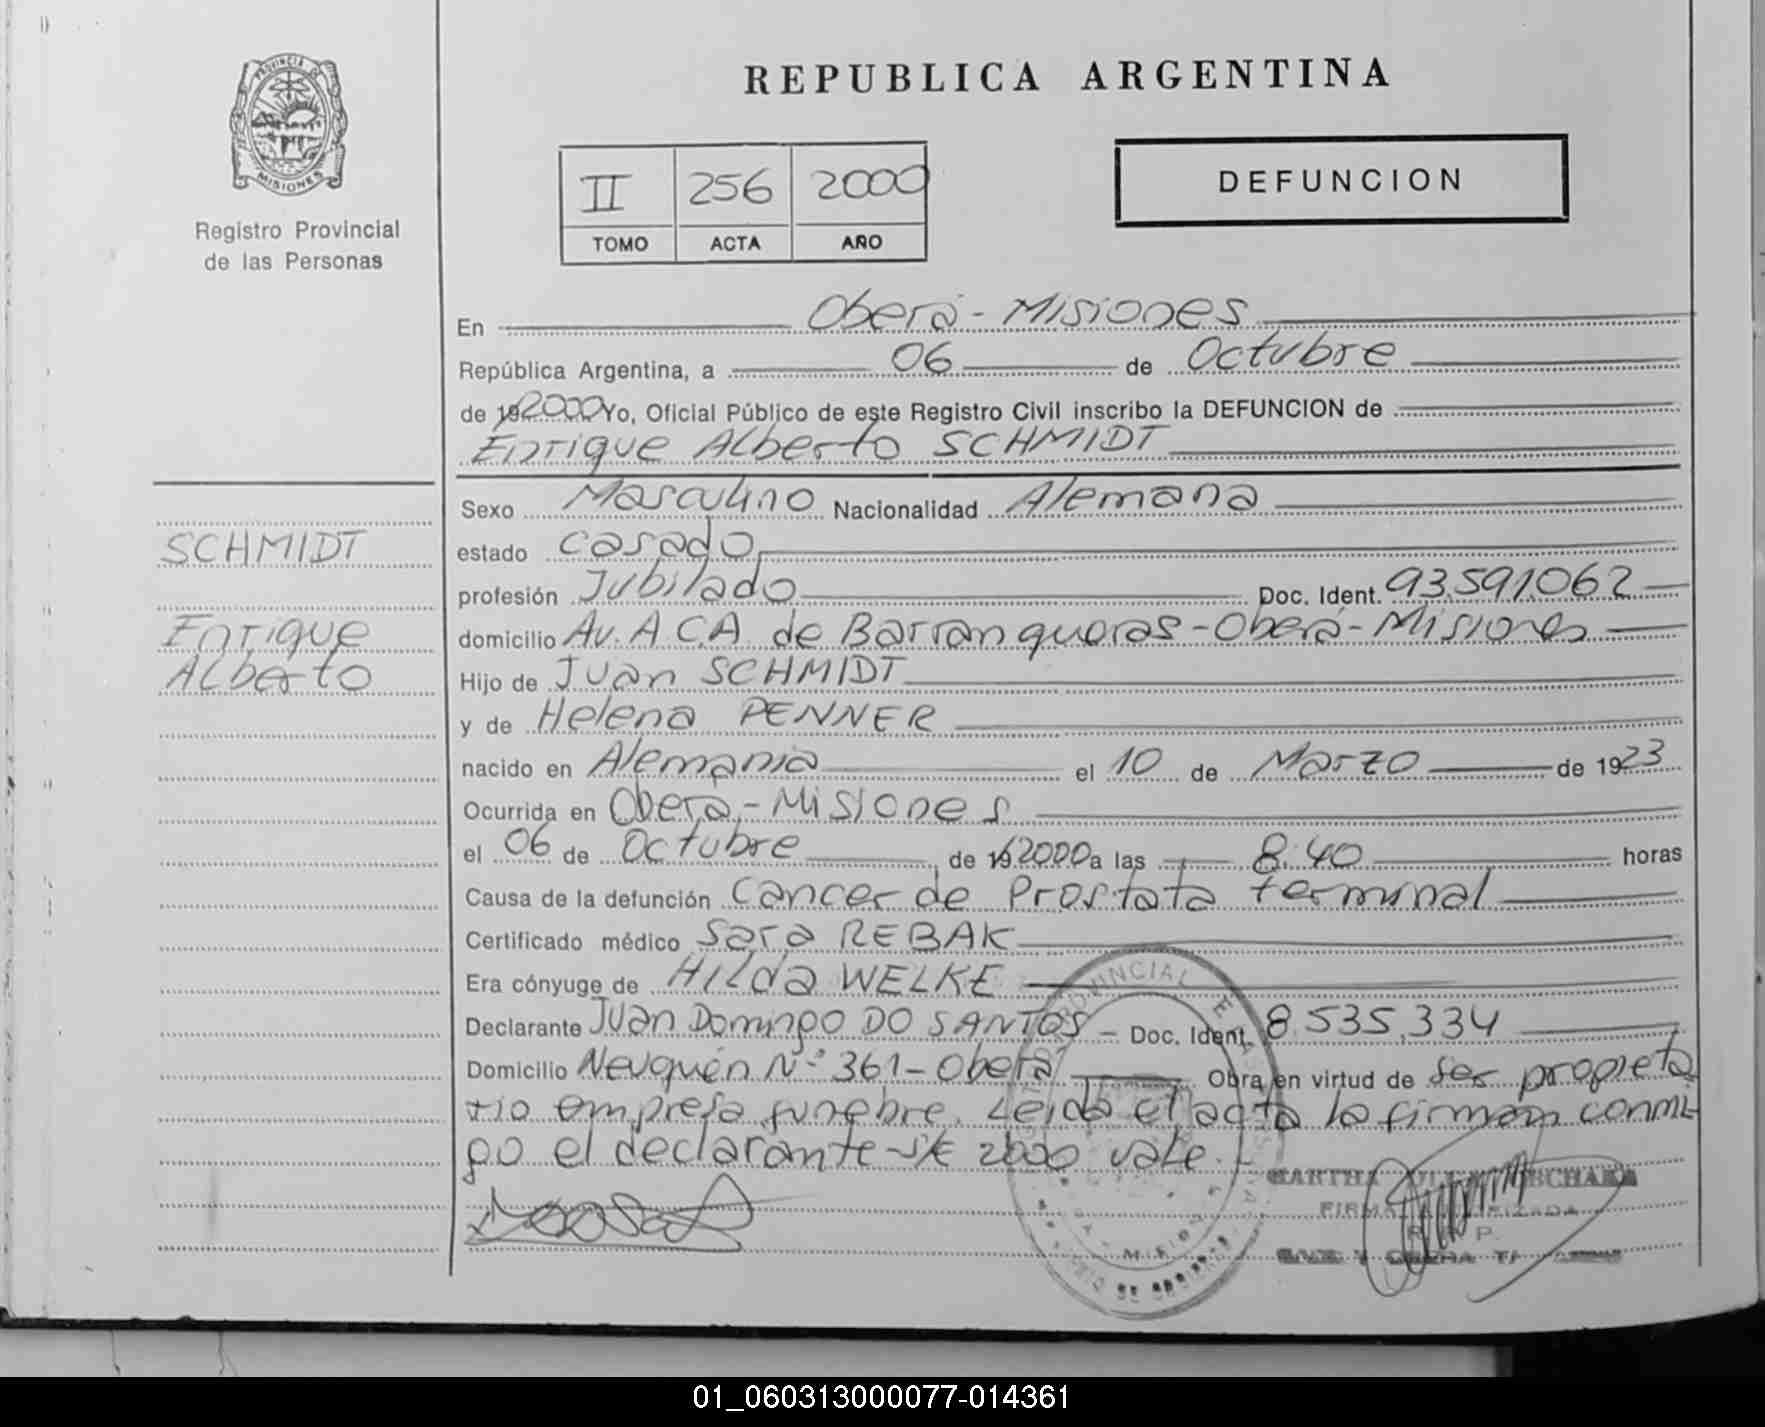 PROVINCIA DE
MISIONES
Registro Provincial
de las Personas
REPUBLICA ARGENTINA
II 256 2000
TOMO ACTA AÑO
DEFUNCION
En Oberá - Misiones
República Argentina, a 06 de Octubre
de 19 2000 Yo, Oficial Público de este Registro Civil inscribo la DEFUNCION de
Enrique Alberto SCHMIDT
SCHMIDT
Enrique
Alberto
Sexo Masculino Nacionalidad Alemana
estado casado
profesión Jubilado Doc. Ident. 93.591.062
domicilio Av. A.C.A. de Barranqueras - Oberá - Misiones
Hijo de Juan SCHMIDT
y de Helena PENNER
nacido en Alemania el 10 de Marzo de 1923
Ocurrida en Oberá - Misiones
el 06 de Octubre de 19 2000 a las 8:40 horas
Causa de la defunción Cancer de Prostata terminal
Certificado médico Sara REBAK
Era cónyuge de Hilda WELKE
Declarante Juan Domingo DO SANTOS - Doc. Ident. 8.535.334
Domicilio Neuquén N° 361 - Oberá Obra en virtud de ser propieta
rio empresa funebre. Leida el acta la firman conmi-
go el declarante - S/E 2000 vale.
PROVINCIAL
MARTHA
FIRMA AUTORIZADA
R. P. P.
01_060313000077-014361